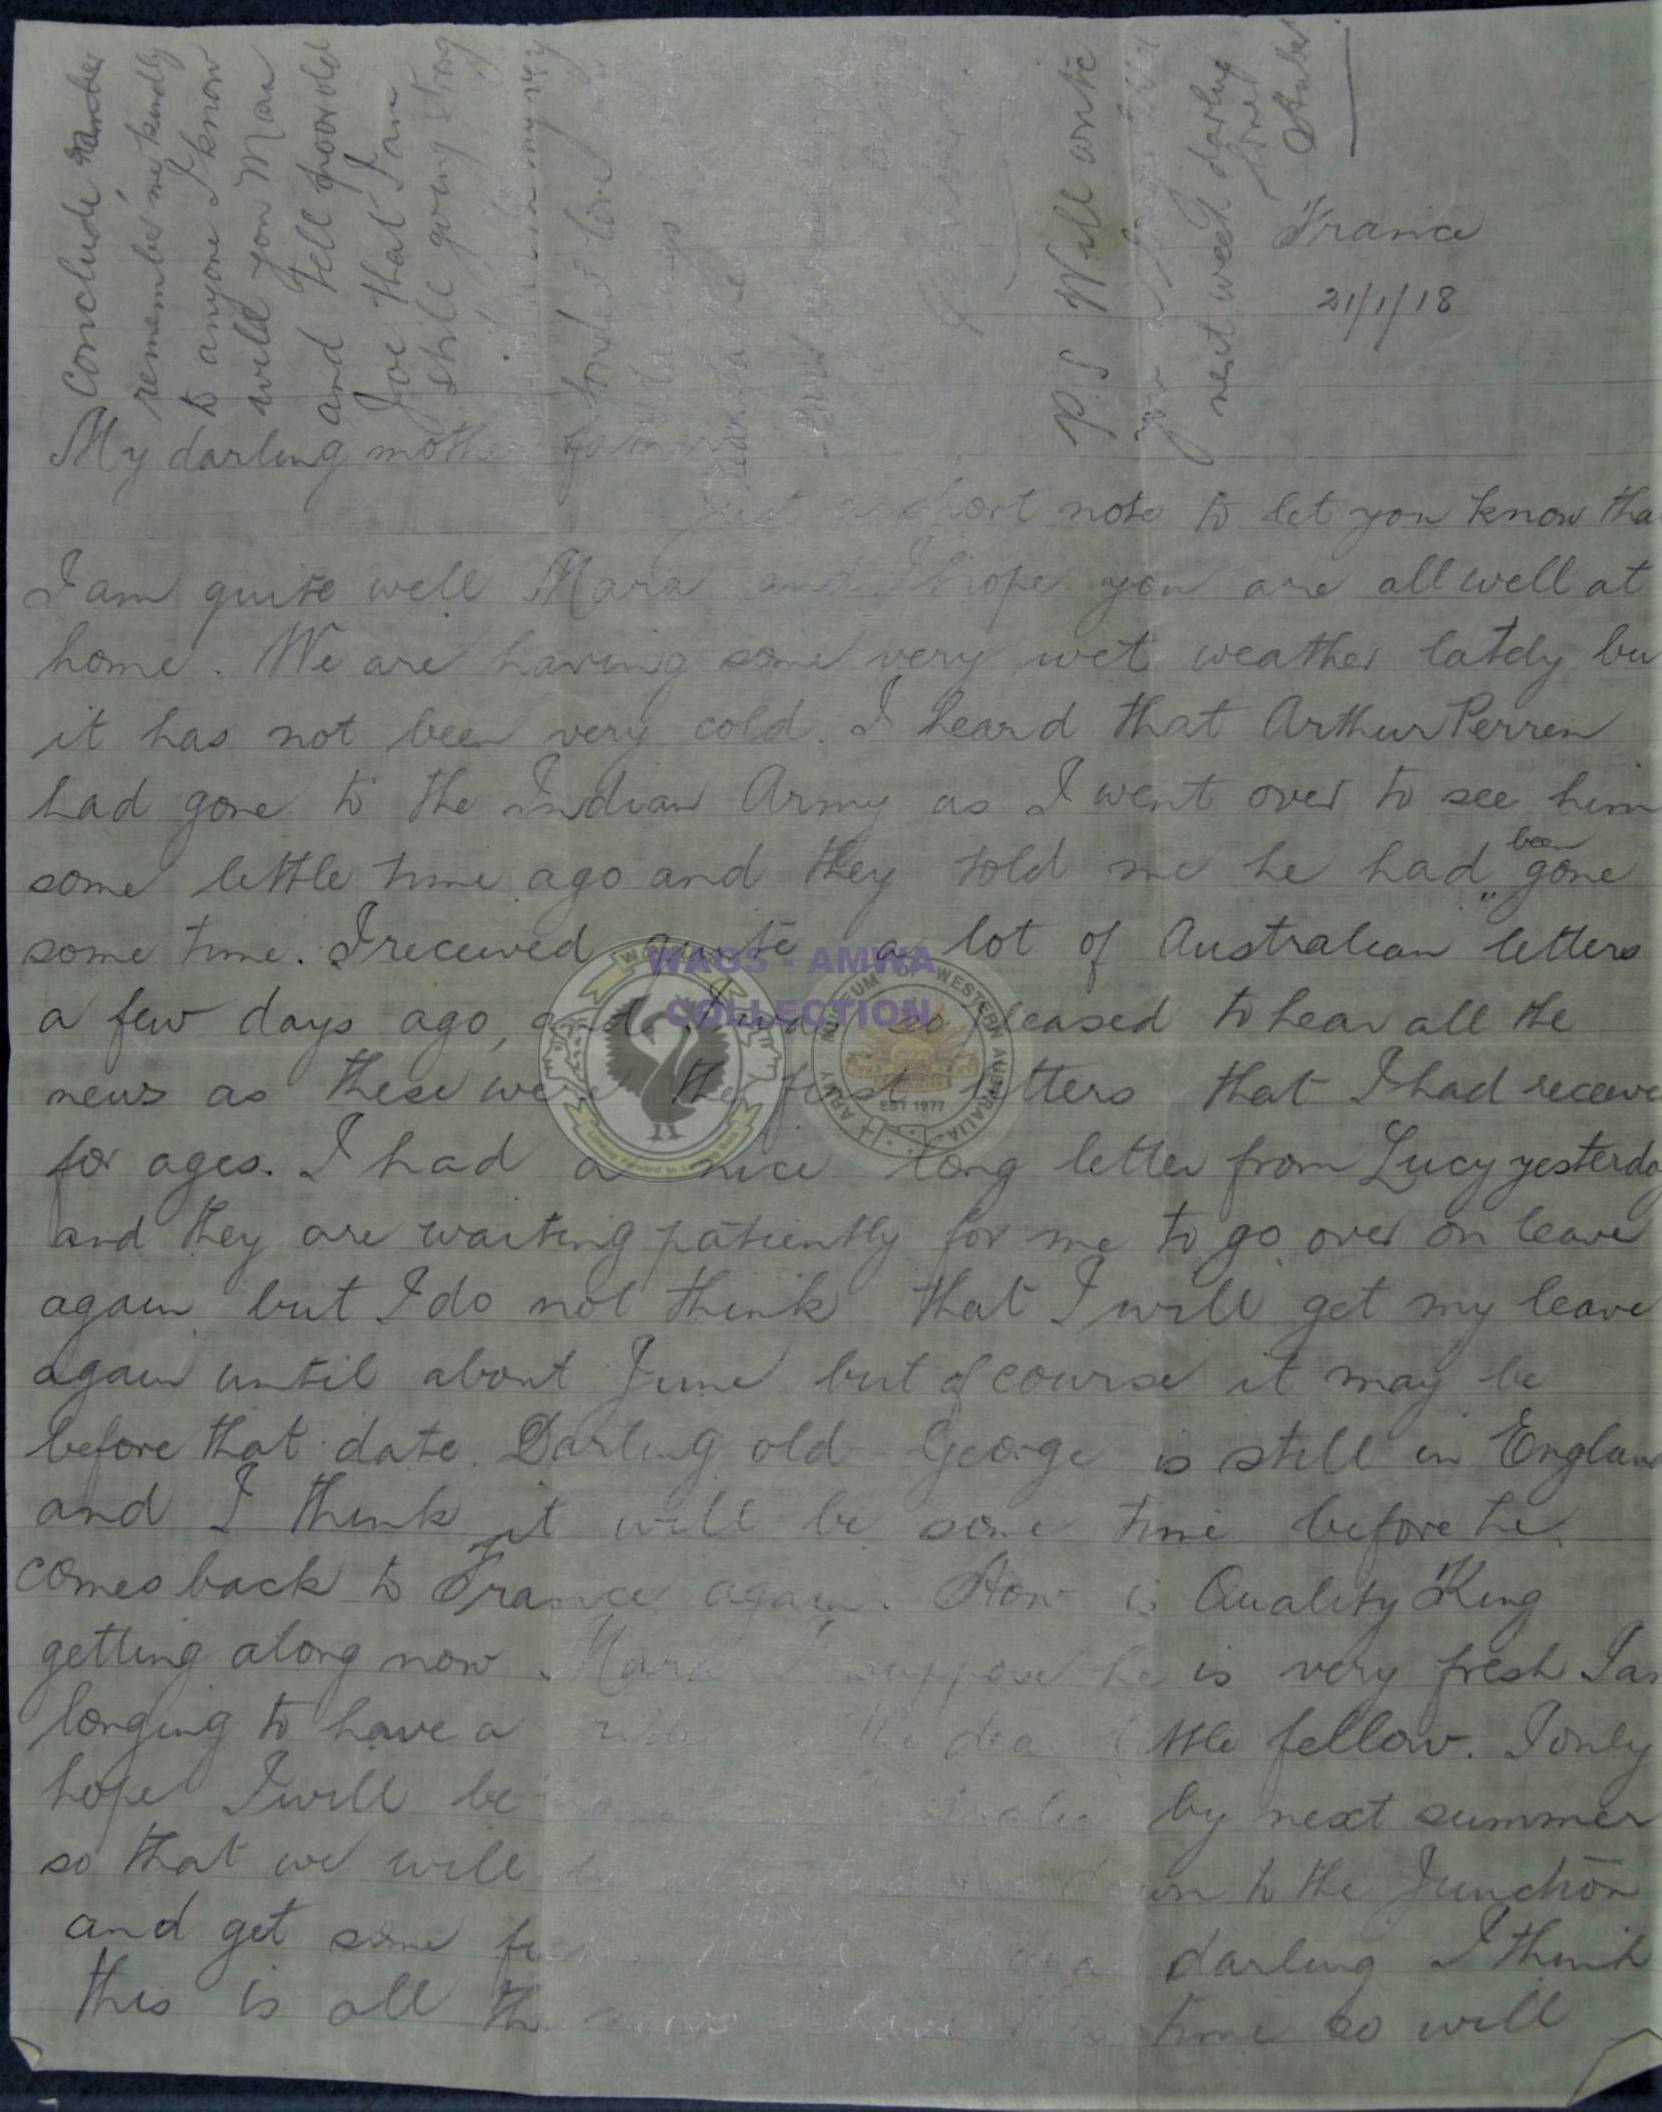 France
21/1/18
My darling mother
short note to let you know tha
I am quite well Mara and I hope you are all well at
home. We are having some very wet weather lately bu
it has not been very cold. I heard that Arthur Perren
had gone to the Indian Army as I went over to see him
some little time ago and they told me he had been gone
some time. I received quite a lot of Australian letters
a few days ago, and I was so pleased to hear all the
news as these were the first letters that I had receive
for ages. I had a nice long letter from Lucy yesterda
and they are waiting patiently for me to go over on leave
again but I do not think that I will get my leave
again until about June but of course it may be
before that date. Darling old George is still in England
and I think it will be some time before he
comes back to France again. How is Quality King
getting along now Mara I suppose he is very fresh I am
longing to have a ride the dear little fellow. I only
hope I will be by next summer
so that we will down to the Junction
and get some darling I think
this is all the time so will
conclude
remember me kindly
to anyone I know
will you Mar
and tell poor old
Joe that I am
still going strong
fondest love
P.S Will write
next week darling
WAGS - AMWA
COLLECTION
ARMY MUSEUM OF WESTERN AUSTRALIA
EST 1977